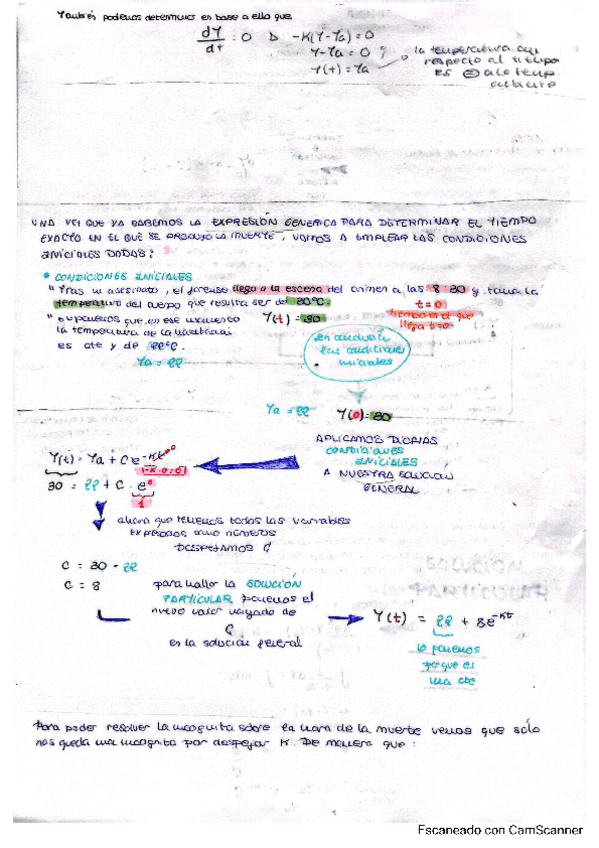 También podemos determinar en base a ello que
dY/dt = 0 → -K(Y-Ya) = 0
Y-Ya = 0 ;
Y(t) = Ya
la temperatura con
respecto al tiempo
es = a la temp.
ambiente
UNA VEZ QUE YA SABEMOS LA EXPRESIÓN GENERICA PARA DETERMINAR EL TIEMPO
EXACTO EN EL QUE SE PRODUJO LA MUERTE, VAMOS A EMPLEAR LAS CONDICIONES
INICIALES DADAS:
* CONDICIONES INICIALES
"Tras un asesinato, el forense llega a la escena del crimen a las 8:30 y toma la
temperatura del cuerpo que resulta ser del 30ºC.
t=0
tiempo en el que
llega t=0
"suponemos que en ese momento
la temperatura de la habitación
es cte y de 22ºC.
Y(t) = 30
Ya = 22
las condiciones
iniciales
Ya = 22 Y(0)=30
APLICAMOS DICHAS
CONDICIONES
INICIALES
A NUESTRA SOLUCIÓN
GENERAL
Y(t) = Ya + C e^-Kt
(-K·0=0)
30 = 22 + C · e^0
1
ahora que tenemos todas las variables
expresadas como números
DESPEJAMOS C
C = 30 - 22
C = 8
para hallar la SOLUCIÓN
PARTICULAR ponemos el
nuevo valor hallado de
C
en la solución general
Y(t) = 22 + 8e^-Kt
lo ponemos
porque es
una cte
Para poder resolver la incognita sobre la hora de la muerte vemos que sólo
nos queda una incognita por despejar K. De manera que:
Escaneado con CamScanner